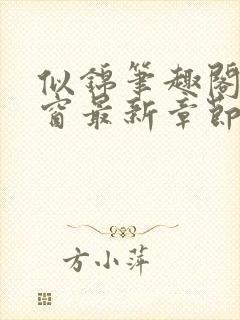 似锦笔趣阁
窗最新章节
方小萍